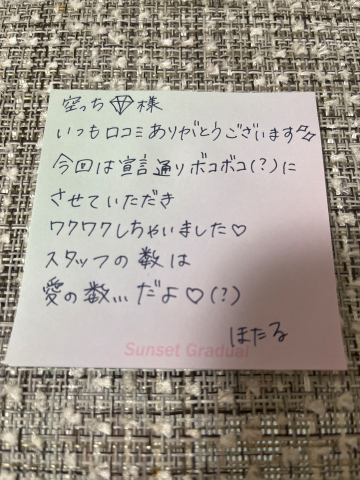 空っち💎様
いつも口コミありがとうございます✨
今回は宣言通りボコボコ(?)に
させていただき
ワクワクしちゃいました♡
スタッフの数は
愛の数…だよ♡(?)
ほたる
Sunset Gradual